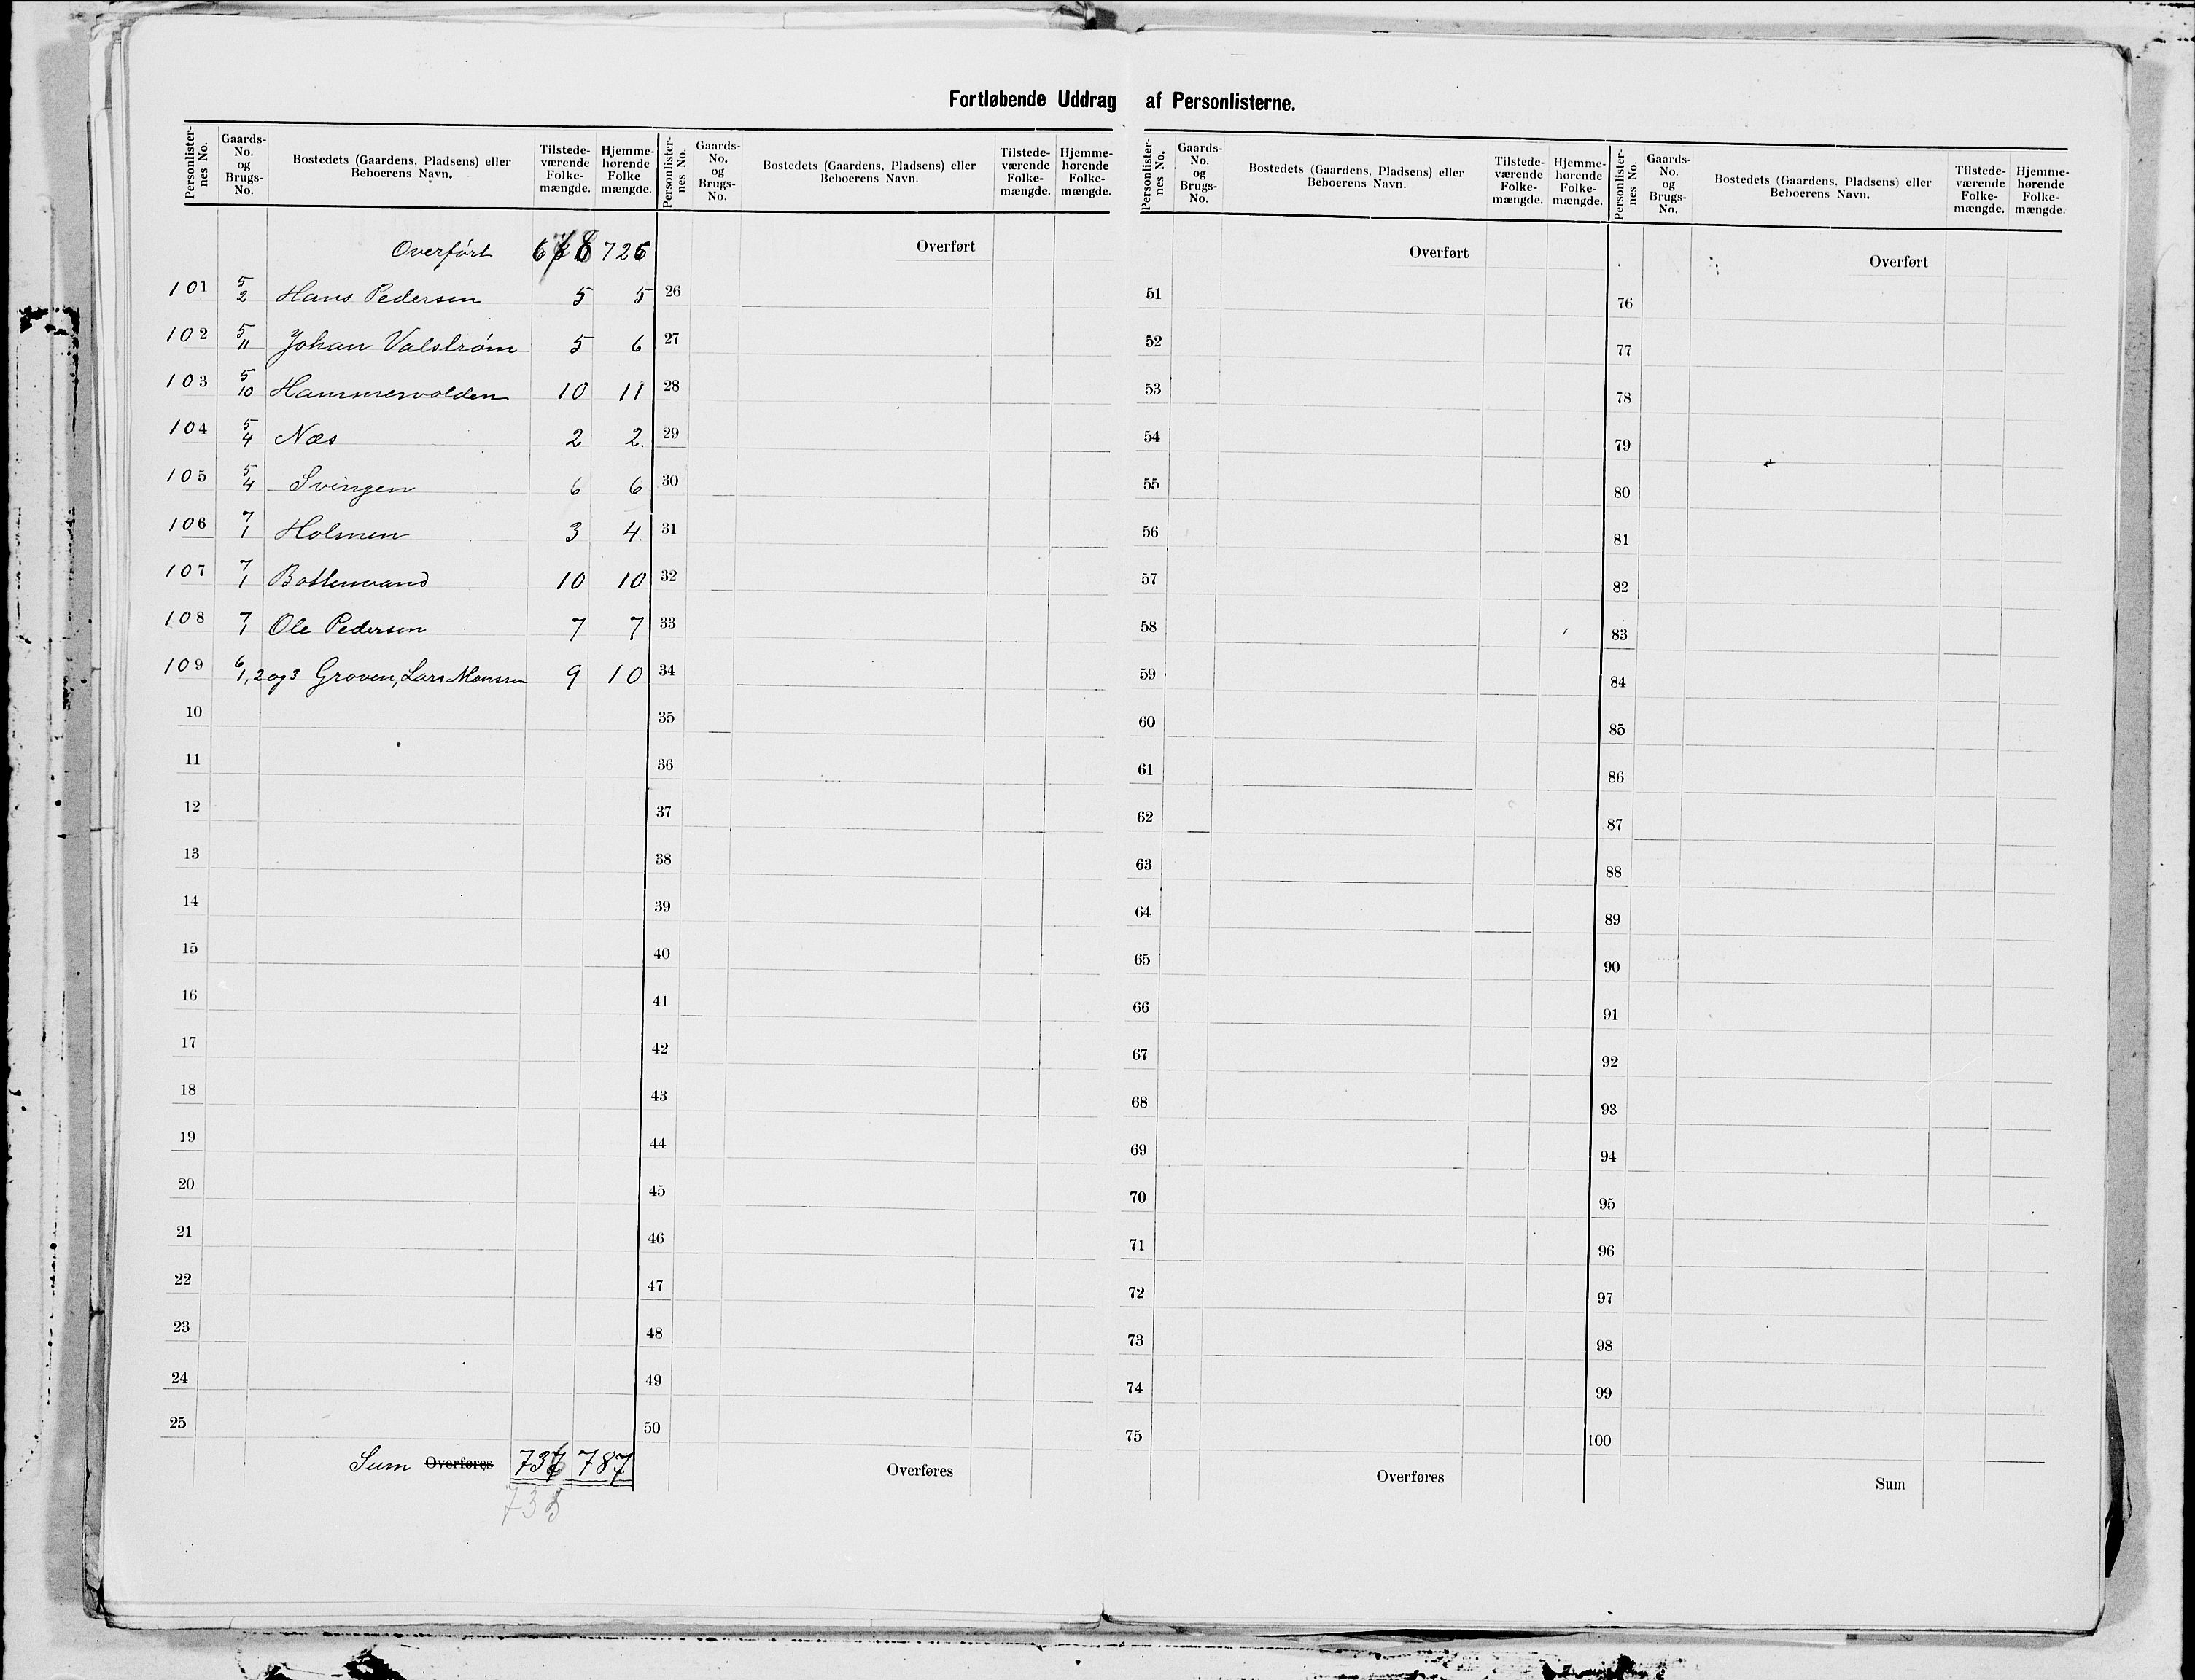 Fortløbende Uddrag af Personlisterne.
Personlister-nes No. | Gaards-No. og Brugs-No. | Bostedets (Gaardens, Pladsens) eller Beboerens Navn. | Tilstede-værende Folke-mængde. | Hjemme-hørende Folke mængde.
Overført 726
101 5/2 Hans Pedersen 5 5
102 5/11 Johan Valstrøm 5 6
103 5/10 Hammervolden 10 11
104 5/4 Næs 2 2.
105 5/4 Svingen 6 6
106 7/1 Holmen 3 4.
107 7/1 Bottenvand 10 10
108 7/1 Ole Pedersen 7 7
109 6/1, 2 og 3 Groven, Lars Monssen 9 10
10
11
12
13
14
15
16
17
18
19
20
21
22
23
24
25
Sum Overføres 787
Personlister-nes No. | Gaards-No. og Brugs-No. | Bostedets (Gaardens, Pladsens) eller Beboerens Navn. | Tilstede-værende Folke-mængde. | Hjemme-hørende Folke-mængde.
Overført
26
27
28
29
30
31
32
33
34
35
36
37
38
39
40
41
42
43
44
45
46
47
48
49
50
Overføres
Personlister-nes No. | Gaards-No. og Brugs-No. | Bostedets (Gaardens, Pladsens) eller Beboerens Navn. | Tilstede-værende Folke-mængde. | Hjemme-hørende Folke-mængde.
Overført
51
52
53
54
55
56
57
58
59
60
61
62
63
64
65
66
67
68
69
70
71
72
73
74
75
Overføres
Personlister-nes No. | Gaards-No. og Brugs-No. | Bostedets (Gaardens, Pladsens) eller Beboerens Navn. | Tilstede-værende Folke-mængde. | Hjemme-hørende Folke-mængde.
Overført
76
77
78
79
80
81
82
83
84
85
86
87
88
89
90
91
92
93
94
95
96
97
98
99
100
Sum